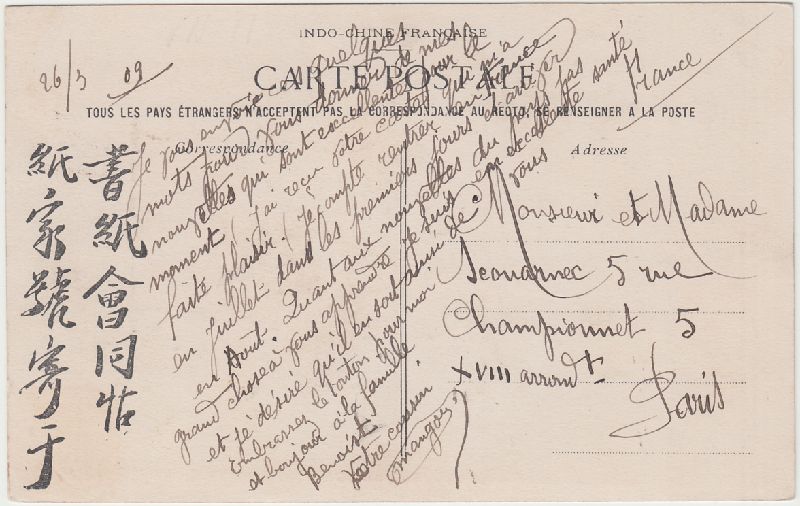 INDO-CHINE FRANÇAISE
CARTE POSTALE
TOUS LES PAYS ÉTRANGERS N'ACCEPTENT PAS LA CORRESPONDANCE AU RECTO, SE RENSEIGNER A LA POSTE
Correspondance
Adresse
26/3 09
Je vous envoie ces quelques
mots pour vous donner de mes
nouvelles qui sont excellentes pour le
moment. J'ai reçu votre carte qui m'a
faite plaisir. Je compte rentrer en France
en Juillet dans les premiers jours et arriver
en Août. Quant aux nouvelles du pays pas
grand chose à vous apprendre. Je suis en excellente santé
et je désire qu'il en soit ainsi de vous
Embrasses le ponton pour moi
et bonjour à la famille
Benoist
Votre cousin
Monsieur et Madame
5 rue
Championnet 5
XVIII arrondt
Paris
France
書紙會同怙
紙家號寄于